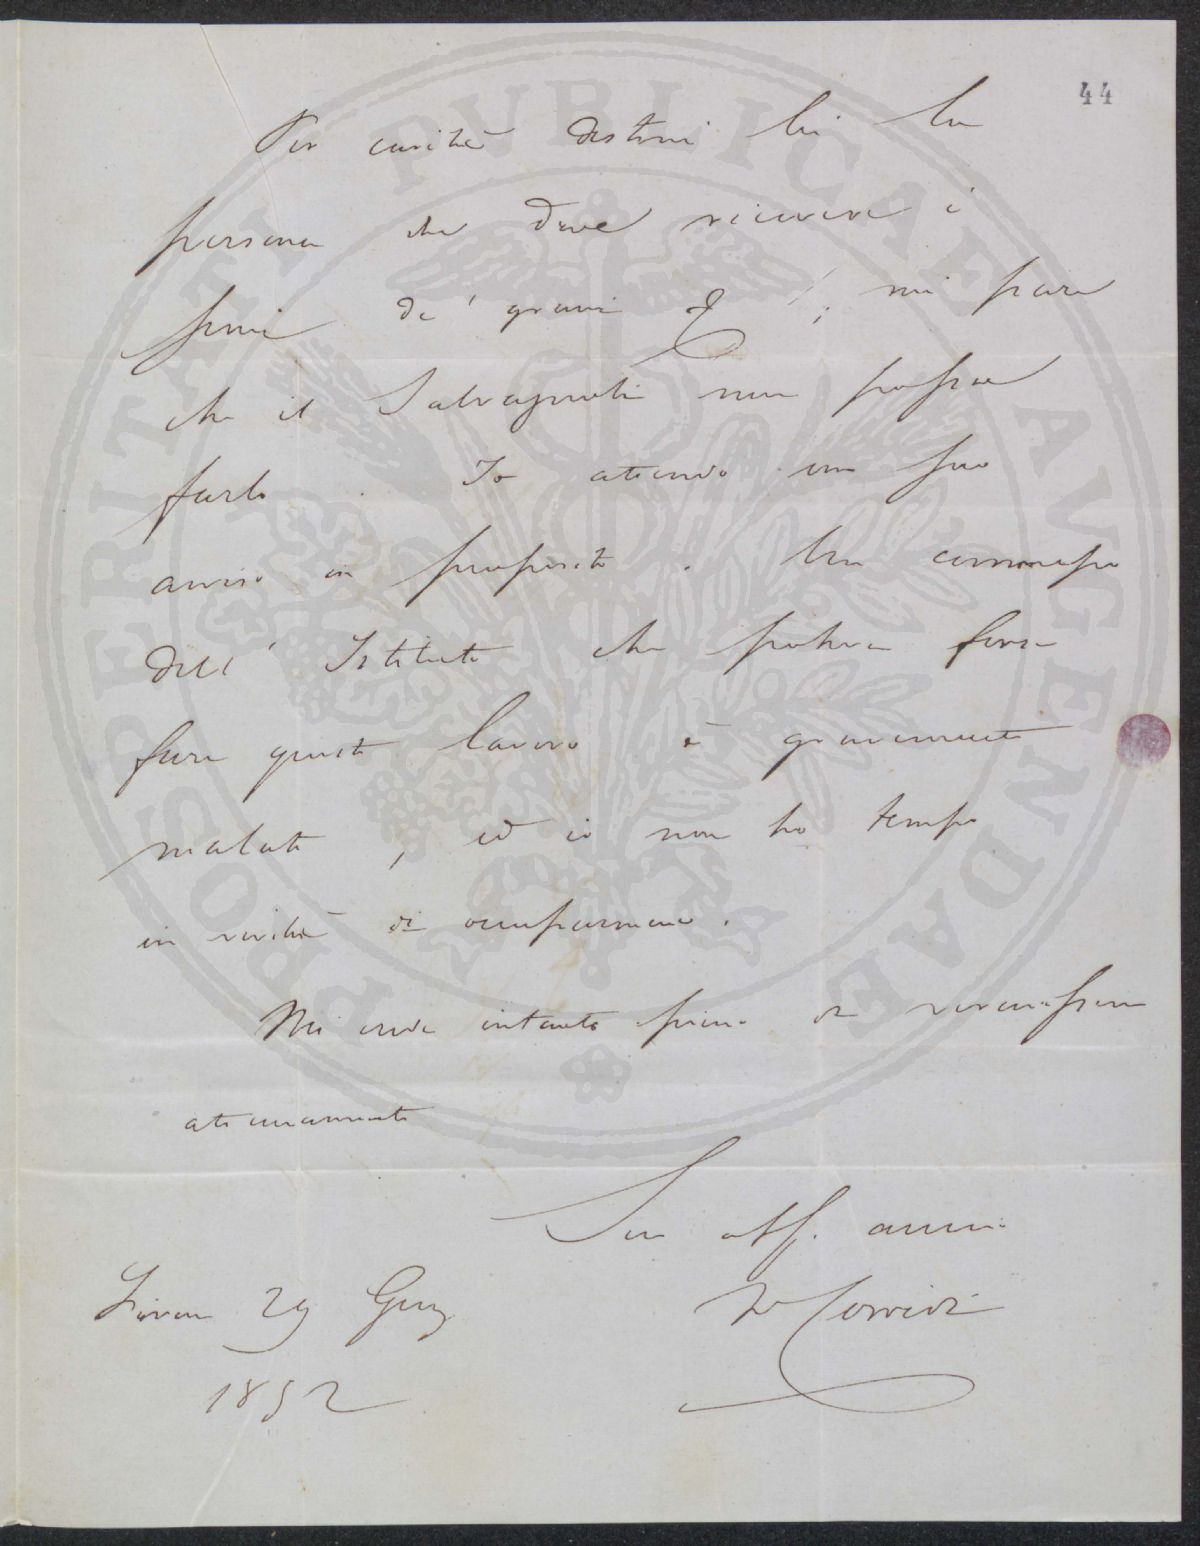 44
Per carità destini lei la
persona che deve ricevere i
semi de' grani &; mi pare
che il Salvagnoli non possa
farlo. Io attendo un suo
avviso in proposito. Un commesso
dell' Istituto che poteva forse
fare questo lavoro è gravemente
malato, ed io non ho tempo
in verità di occuparmene.
Mi creda intanto
attenuamente
Suo aff. amico
Corridi
Firenze 29 Gen
1852
PROSPERITATI PVBLICAE AVGENDAE